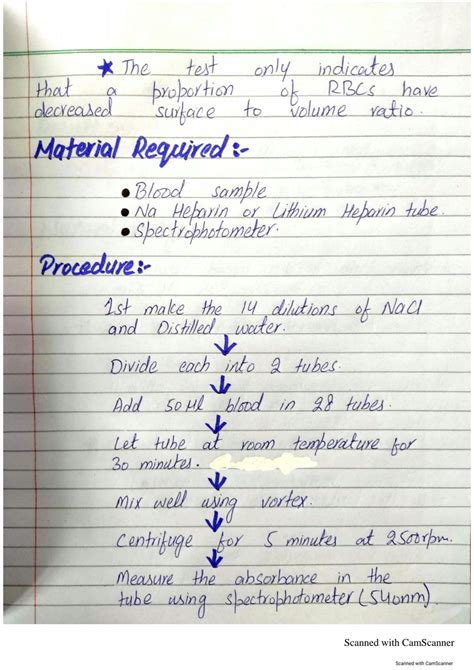 ★ The test only indicates
that a proportion of RBCs have
decreased surface to volume ratio.
Material Required:-
• Blood sample
• Na Heparin or Lithium Heparin tube.
• Spectrophotometer.
Procedure:-
1st make the 14 dilutions of NaCl
and Distilled water.
↓
Divide each into 2 tubes.
↓
Add 50 μl blood in 28 tubes.
↓
Let tube at room temperature for
30 minutes.
↓
Mix well using vortex.
↓
Centrifuge for 5 minutes at 2500rpm.
↓
Measure the absorbance in the
tube using spectrophotometer (540nm).
Scanned with CamScanner
Scanned with CamScanner